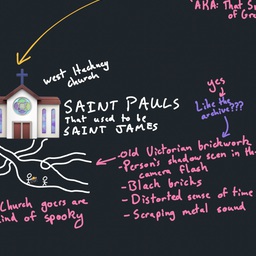 "AKA: That S
of Gre
West Hackney
church
SAINT PAULS
That used to be
SAINT JAMES
yes
Like the
archive???
-Old Victorian brickwork
-Person's shadow seen in th
camera flash
-Black bricks
-Distorted sense of time
-Scraping metal sound
Church goers are
ind of spooky